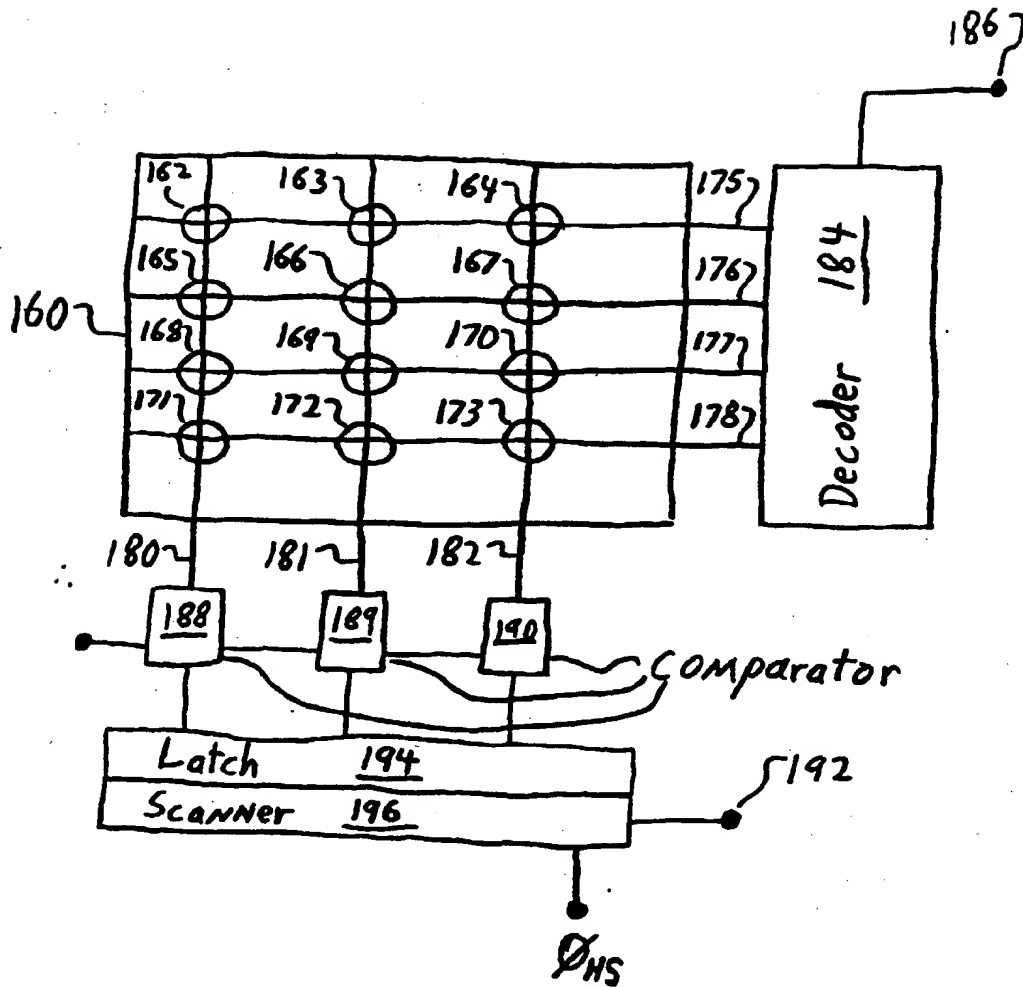 186
162 163 164 175
165 166 167 176
160
168 169 170 177
171 172 173 178
Decoder 184
180 181 182
188 189 190
Comparator
Latch 194
192
Scanner 196
ØHS